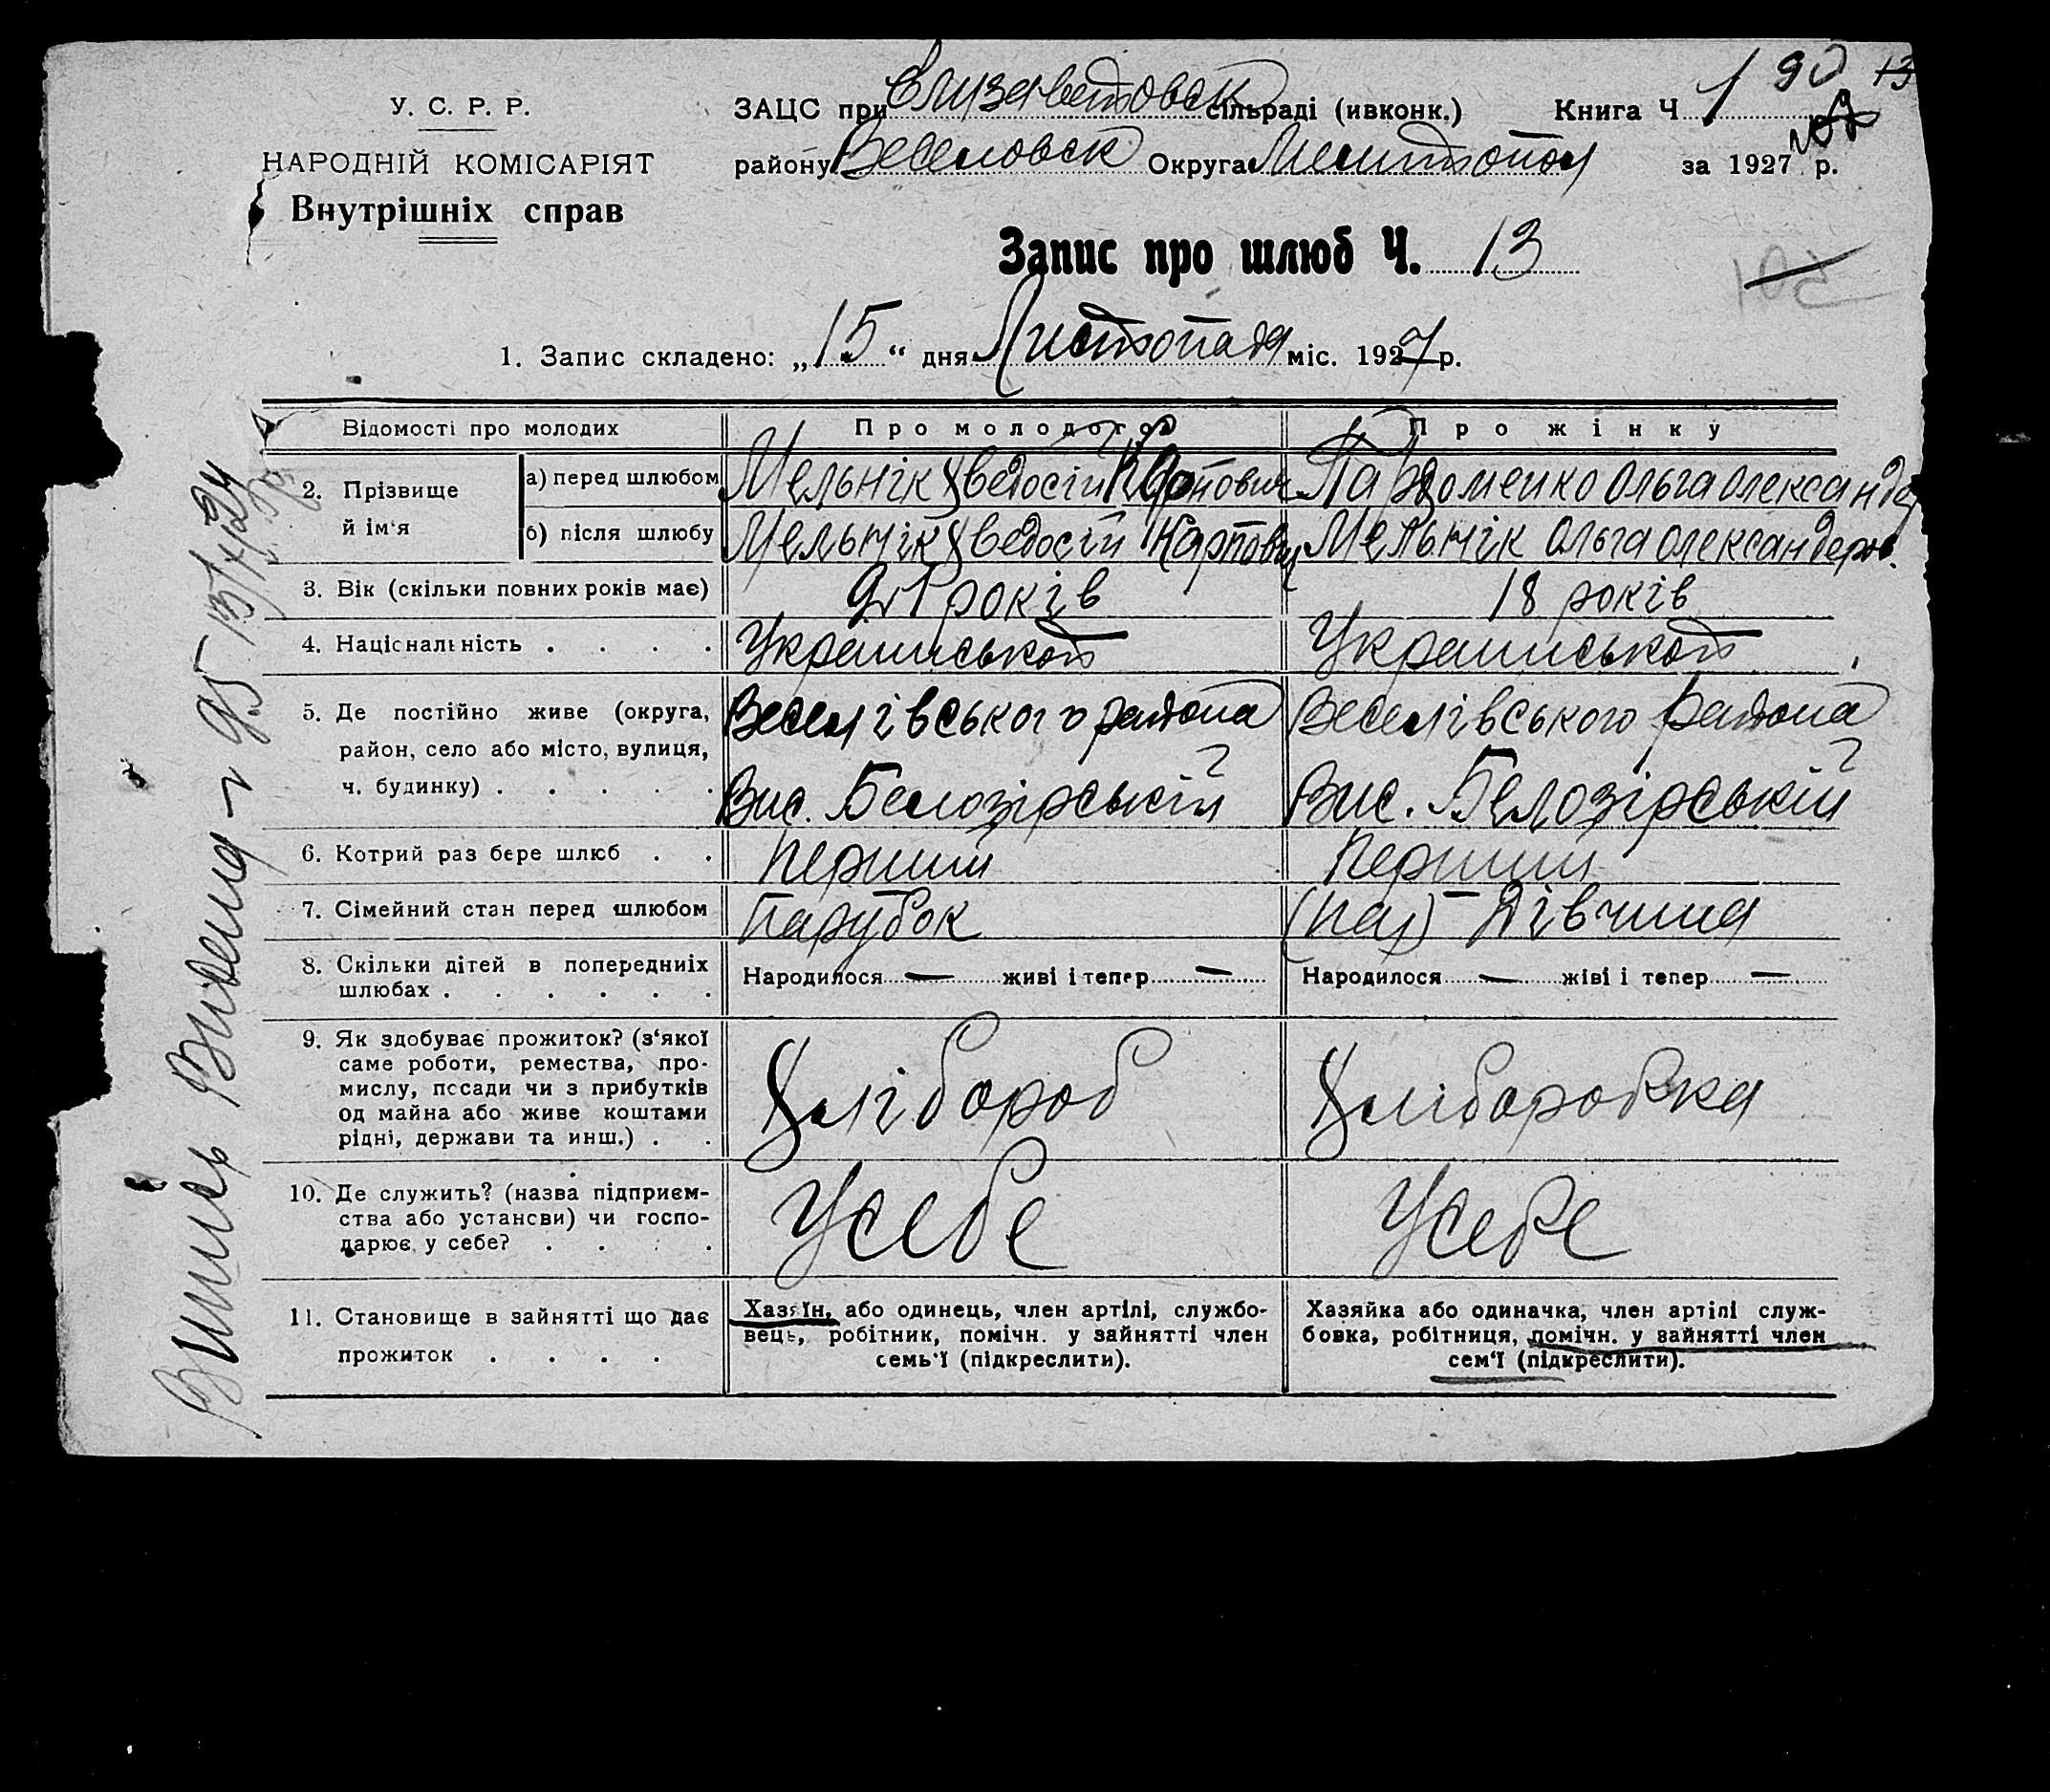 У. С. Р. Р.
НАРОДНІЙ КОМІСАРІЯТ
Внутрішніх справ
ЗАЦС при Єлизаветовск сільраді (ивконк.) Книга Ч. 1 90 13
району Веселовск Округа Мелитопол за 1927 р.
Запис про шлюб Ч. 13
105
1. Запис складено: „15“ дня Листопада міс. 1927 р.
Відомості про молодих
Про молодого
Про жінку
2. Прізвище й ім'я
а) перед шлюбом
Мельнік Хведосій Карпович
Пархоменко Ольга Олександер
б) після шлюбу
Мельнік Хведосій Карпович
Мельнік Ольга Олександеров.
3. Вік (скільки повних років має)
21 років
18 років
4. Націснальність . . . .
Украинськой
Украинськой
5. Де постійно живе (округа,
район, село або місто, вулиця,
ч. будинку) . . . . .
Веселівського району
Вис. Белозірській
Веселівського району
Вис. Белозірській
6. Котрий раз бере шлюб . .
Перший
Перший
7. Сімейний стан перед шлюбом
Парубок
(пар) Дівчина
8. Скільки дітей в попередниіх
шлюбах . . . . . .
Народилося — живі і тепер —
Народилося — жіві і тепер —
9. Як здобуває прожиток? (з'якої
саме роботи, ремества, про-
мислу, пссади чи з прибутків
од майна або живе коштами
рідні, держави та инш.) . .
Хлібороб
Хліборобка
10. Де служить? (назва підприєм-
ства або устансви) чи госпо-
дарює у себе? . . . .
Усебе
Усебе
11. Становище в зайнятті що дає
прожиток . . . .
Хазяїн, або одинець, член артілі, службо-
вець, робітник, помічн. у зайнятті член
семь'ї (підкреслити).
Хазяйка або одиначка, член артілі служ-
бовка, робітниця, помічн. у зайнятті член
сем'ї (підкреслити).